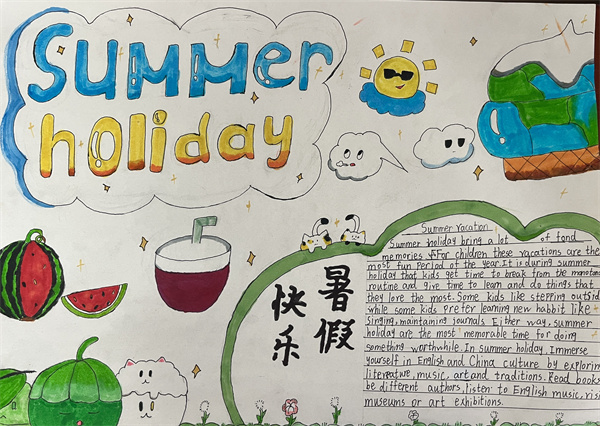 Summer
holiday
暑假
快乐
Summer vacation
Summer holiday bring a lot of fond
memories. For children these vacations are the
most fun period of the year. It is during summer
holiday that kids get time to break from the monotono
routine and give time to learn and do things that
they love the most. Some kids like stepping outsid
while some kids prefer learning new habbit like
singing, maintaining journals. Either way, summer
holiday are the most memorable time for doing
something worthwhile. In summer holiday, Immerse
yourself in English and China culture by explorin
literature, music, art and traditions. Read books
be different authors, listen to English music, visi
museums or art exhibitions.